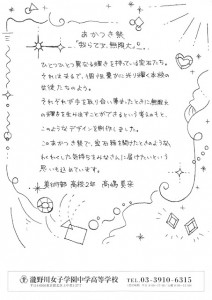 あかつき祭
"彩りて☆、無限大。"
ひとつひとつ異なる輝きを持っている宝石たち。
それはまるで、1個1個豊かに光り輝く本校の
生徒たちのよう。
それぞれが手を取り合い集めたときに無限大
の輝きを生み出すことができるという意味をこめて、
このようなデザインを制作しました。
このあかつき祭で、宝石箱を開けたときのような、
わくわくした気持ちをみなさんに届けたいという
思いも込めています。
美術部 高校2年
瀧野川女子学園中学高等学校
TEL.03-3910-6315